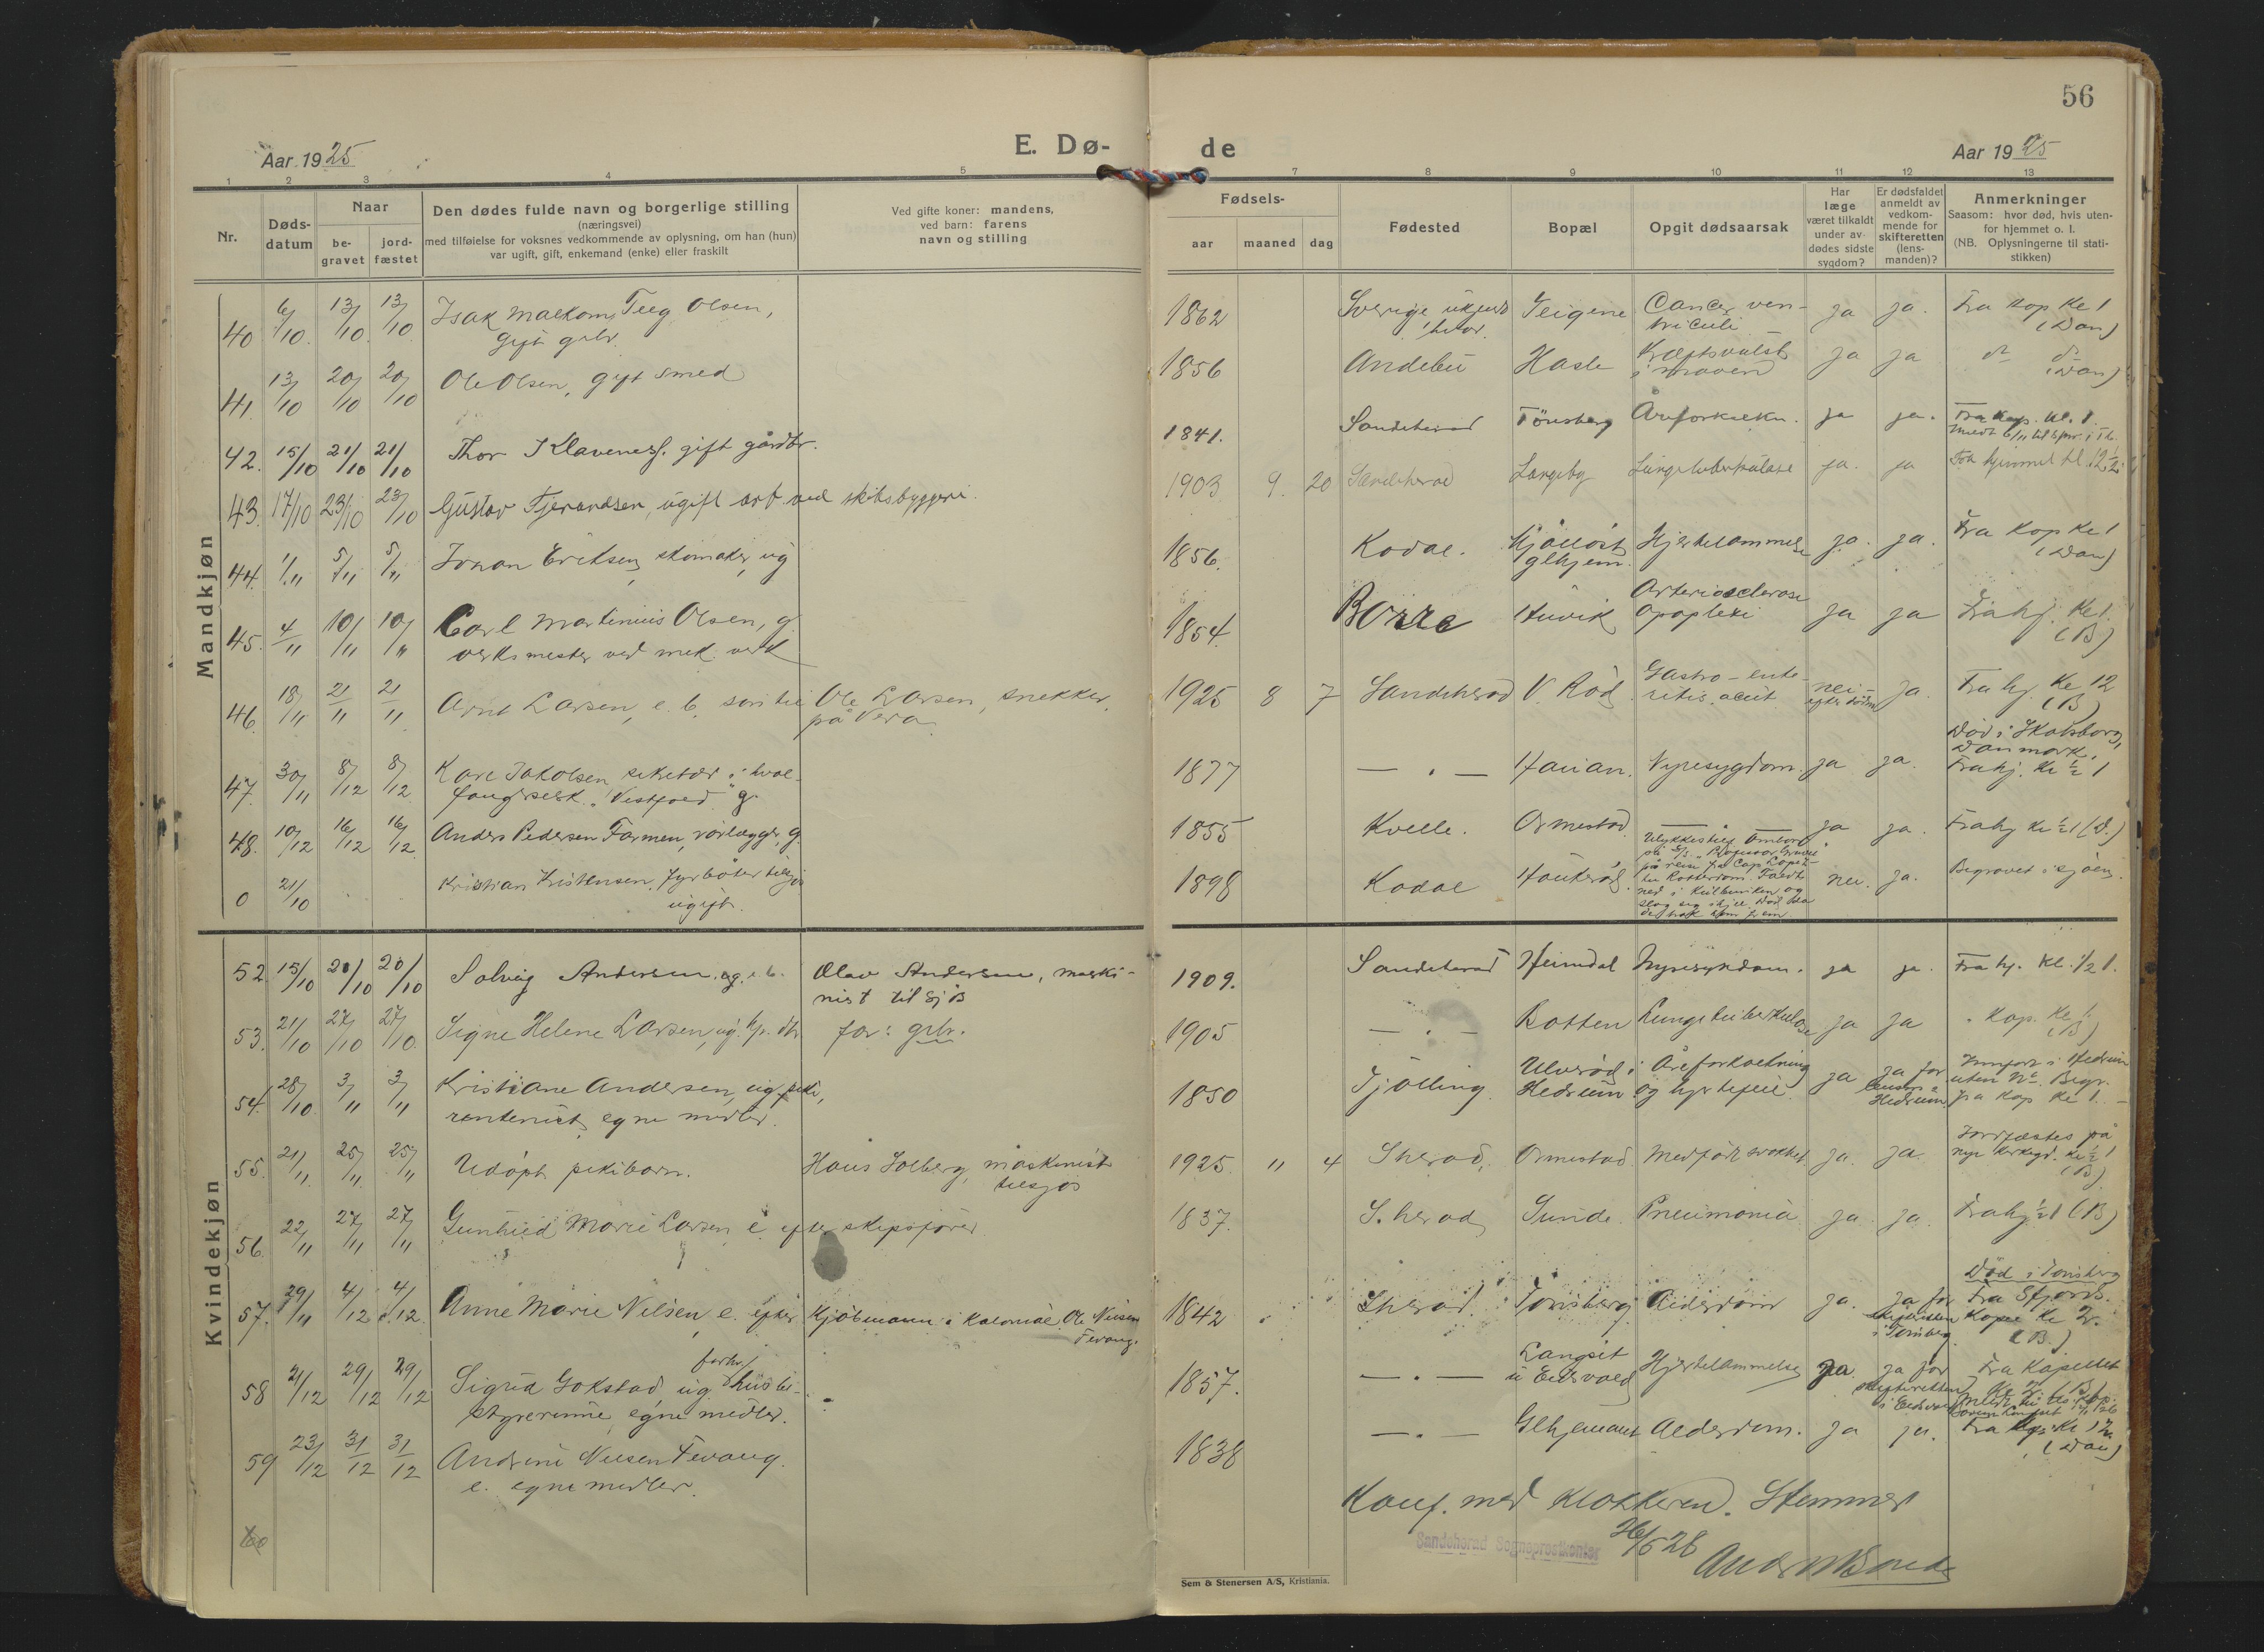 56
Aar 1925
E. Dø-
de
Aar 1925
1 2 3 4 5 7 8 9 10 11 12 13
Nr.
Døds-
datum
Naar
be-
gravet
jord-
fæstet
Den dødes fulde navn og borgerlige stilling
(næringsvei)
med tilføielse for voksnes vedkommende av oplysning, om han (hun)
var ugift, gift, enkemand (enke) eller fraskilt
Ved gifte koner: mandens,
ved barn: farens
navn og stilling
Fødsels-
aar maaned dag
Fødested
Bopæl
Opgit dødsaarsak
Har
læge
været tilkaldt
under av-
dødes sidste
sygdom?
Er dødsfaldet
anmeldt av
vedkom-
mende for
skifteretten
(lens-
manden)?
Anmerkninger
Saasom: hvor død, hvis uten-
for hjemmet o. l.
(NB. Oplysningerne til stati-
stikken)
Mandkjøn
40 6/10. 13/10. 13/10. Isak Teeg Olsen,
gift grbr.
1862 Sverige ukjend
hvor.
Geigene Cancer ven-
triculi
ja ja. Fra kap Kl 1
(Dan)
41. 13/10 20/10 20/10 Ole Olsen, gift smed
1856 Andebu Hasle Kræftsvulst
i maven
ja ja do do
(Dan)
42. 15/10 21/10 21/10 Thor Klaveness. gift gårdbr.
1841. Sandeherad Tönsberg Åreforkalkn. ja ja. Fra Kap. kl. 1.
43. 17/10 23/10 23/10 Gustav Tjerandsen, ugift arb. ved skibsbyggeri.
1903 9. 20 Sandeherad Langeby Lungetuberkulose ja. ja Fra hjemmet kl. 12½
44. 1/11 5/11 5/11 Johan Eriksen, skomaker, ug
1856. Kodal. glhjem. Hjertelammelse ja. ja. Fra Kap Kl 1
(Dan)
45. 4/11 10/11 10/11 Carl Martinius Olsen, g.
verksmester ved mek. verk
1854. Borre Huvik Arteriosclerose
Apoplexi
ja ja Fra hj. Kl 1.
(B)
46. 18/11 21/11 21/11 Arne Larsen, e. b. søn til Ole Larsen, snekker,
på Vera.
1925 8 7 Sandeherad V. Rød Gastro-ente-
ritis acut
nei -
efter døden
ja. Fra hj. Kl 12
(B)
47. 30/11 8/12 8/12 Karl Jakobsen, sekretær i hval-
fangerselsk. "Vestfold" g.
1877 — . — Hauan. Nyresygdom. ja ja.
Død i Skodsborg,
Danmark.
Fra hj. Kl ½ 1
48. 10/12 16/12 16/12 Anders Pedersen Farmen, rörlægger, g.
1855 Kvelle. Ormestad. — — ja ja. Fra hj Kl ½ 1 (D.)
0 21/10 Kristian Kristensen, fyrbøter tilsjøs
ugift.
1898 Kodal Haukerød. Ulykkestilf. ombord
på S/S "Professor Gruvel"
på reise fra Cap Lopez
til Rotterdam. Faldt
ned i kulbunken og
slog sig ihjel.
nei. ja. Begravet i sjøen.
Kvindekjøn
52 15/10 20/10 20/10 Solveig Andersen. ug. e. b. Olav Andersen, maski-
nist til sjøs
1909. Sandeherad Heimdal Nyresykdom. ja ja. Fra hj. Kl. ½ 1.
53. 21/10 27/10 27/10. Signe Helene Larsen, ug. hj. dtr far: grbr.
1905 — . — Botten Lungetuberkulose ja ja " Kap. Kl 1.
(B)
54. 28/10. 3/11 3/11 Kristiane Andersen, ug pike,
rentenist, egne midler.
1850 Tjølling. Ulverød i
Hedrum
Åreforkalkning
og hjertefeil
ja ja for
lensm. i
Hedrum.
Innført i Hedrum
uten No. Begr.
fra Kap Kl 1. —
55. 21/11. 25/11. 25/11 Udøpt pikebarn. Hans Solberg, maskinist
tilsjøs
1925. 11 4 Sherad, Ormestad Medfødt svakhet ja. ja. Jordfæstes på
nye kirkegd. Kl ½ 1
(B)
56. 22/11 27/11 27/11 Gunhild Marie Larsen e. efter skipsfører
1837. S. herad Sunde. Pneumonia ja ja. Fra hj ½ 1 (B)
57. 29/11 4/12 4/12. Anne Marie Nilsen, e. efter kjøbmann i kolonial Ole Nilsen
Fevang.
1842 Sherad. Tønsberg Alderdom ja. ja for
skifteretten
i Tønsberg
Død i Tønsberg
Fra Sfjords.
Kapel Kl 2.
(B.)
58 21/12 29/12 29/12 Sigrid Gokstad, ug. forhv. husbe-
styrerinne, egne midler.
1857. — . — Langset
i Eidsvold
Hjertelammelse ja. ja for
skifteretten
i Eidsvold
Fra Kapellet
Kl 2. (B)
59 23/12 31/12 31/12 Andrine Nilsen Fevang.
e. egne midler.
1838 — . — Glhjemmet Alderdom. ja ja. Fra Kap. Kl 1 ½
(Dan)
60
Konf. med klokkeren. Stemmer
26/5 28
Sandeherad Sogneprestkontor
Sem & Stenersen A/S, Kristiania.